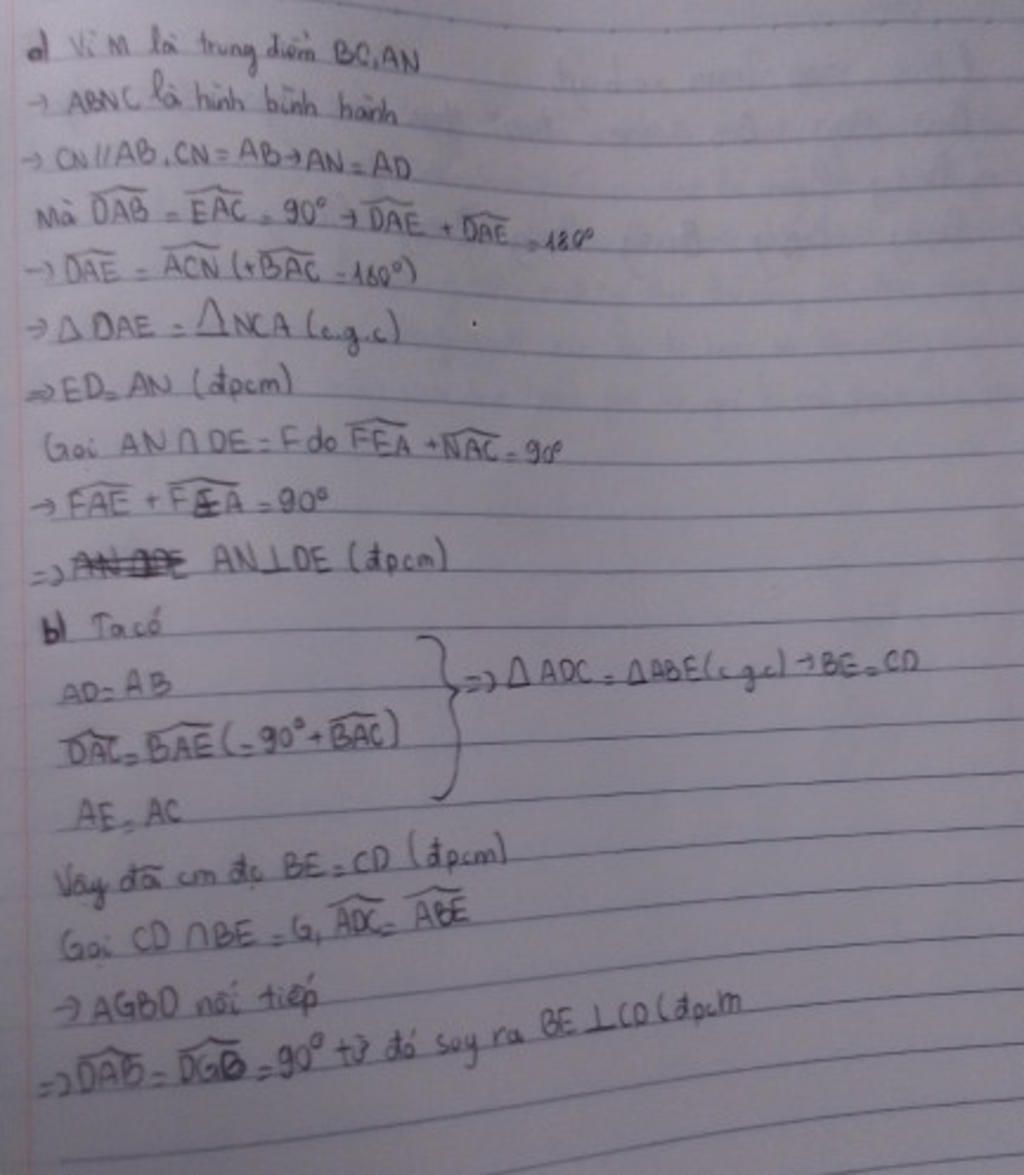 a) Vì M là trung điểm BC, AN
→ ABNC là hình bình hành
→ CN // AB, CN = AB → AN = AD
Mà \widehat{DAB} = \widehat{EAC} = 90° → \widehat{DAE} + \widehat{DAE} = 180°
→ \widehat{DAE} = \widehat{ACN} (+\widehat{BAC} = 180°)
→ Δ DAE = Δ NCA (c.g.c)
⇒ ED = AN (đpcm)
Gọi AN ∩ DE = F do \widehat{FEA} + \widehat{NAC} = 90°
→ \widehat{FAE} + \widehat{FEA} = 90°
⇒ AN ⊥ DE (đpcm)
b) Ta có
AD = AB
\widehat{DAC} = \widehat{BAE} (= 90° + \widehat{BAC}) } ⇒ Δ ADC = Δ ABE (c.g.c) → BE = CD
AE = AC
Vậy đã cm đc BE = CD (đpcm)
Gọi CD ∩ BE = G, \widehat{ADC} = \widehat{ABE}
→ AGBD nội tiếp
⇒ \widehat{DAB} = \widehat{DGB} = 90° từ đó suy ra BE ⊥ CD (đpcm